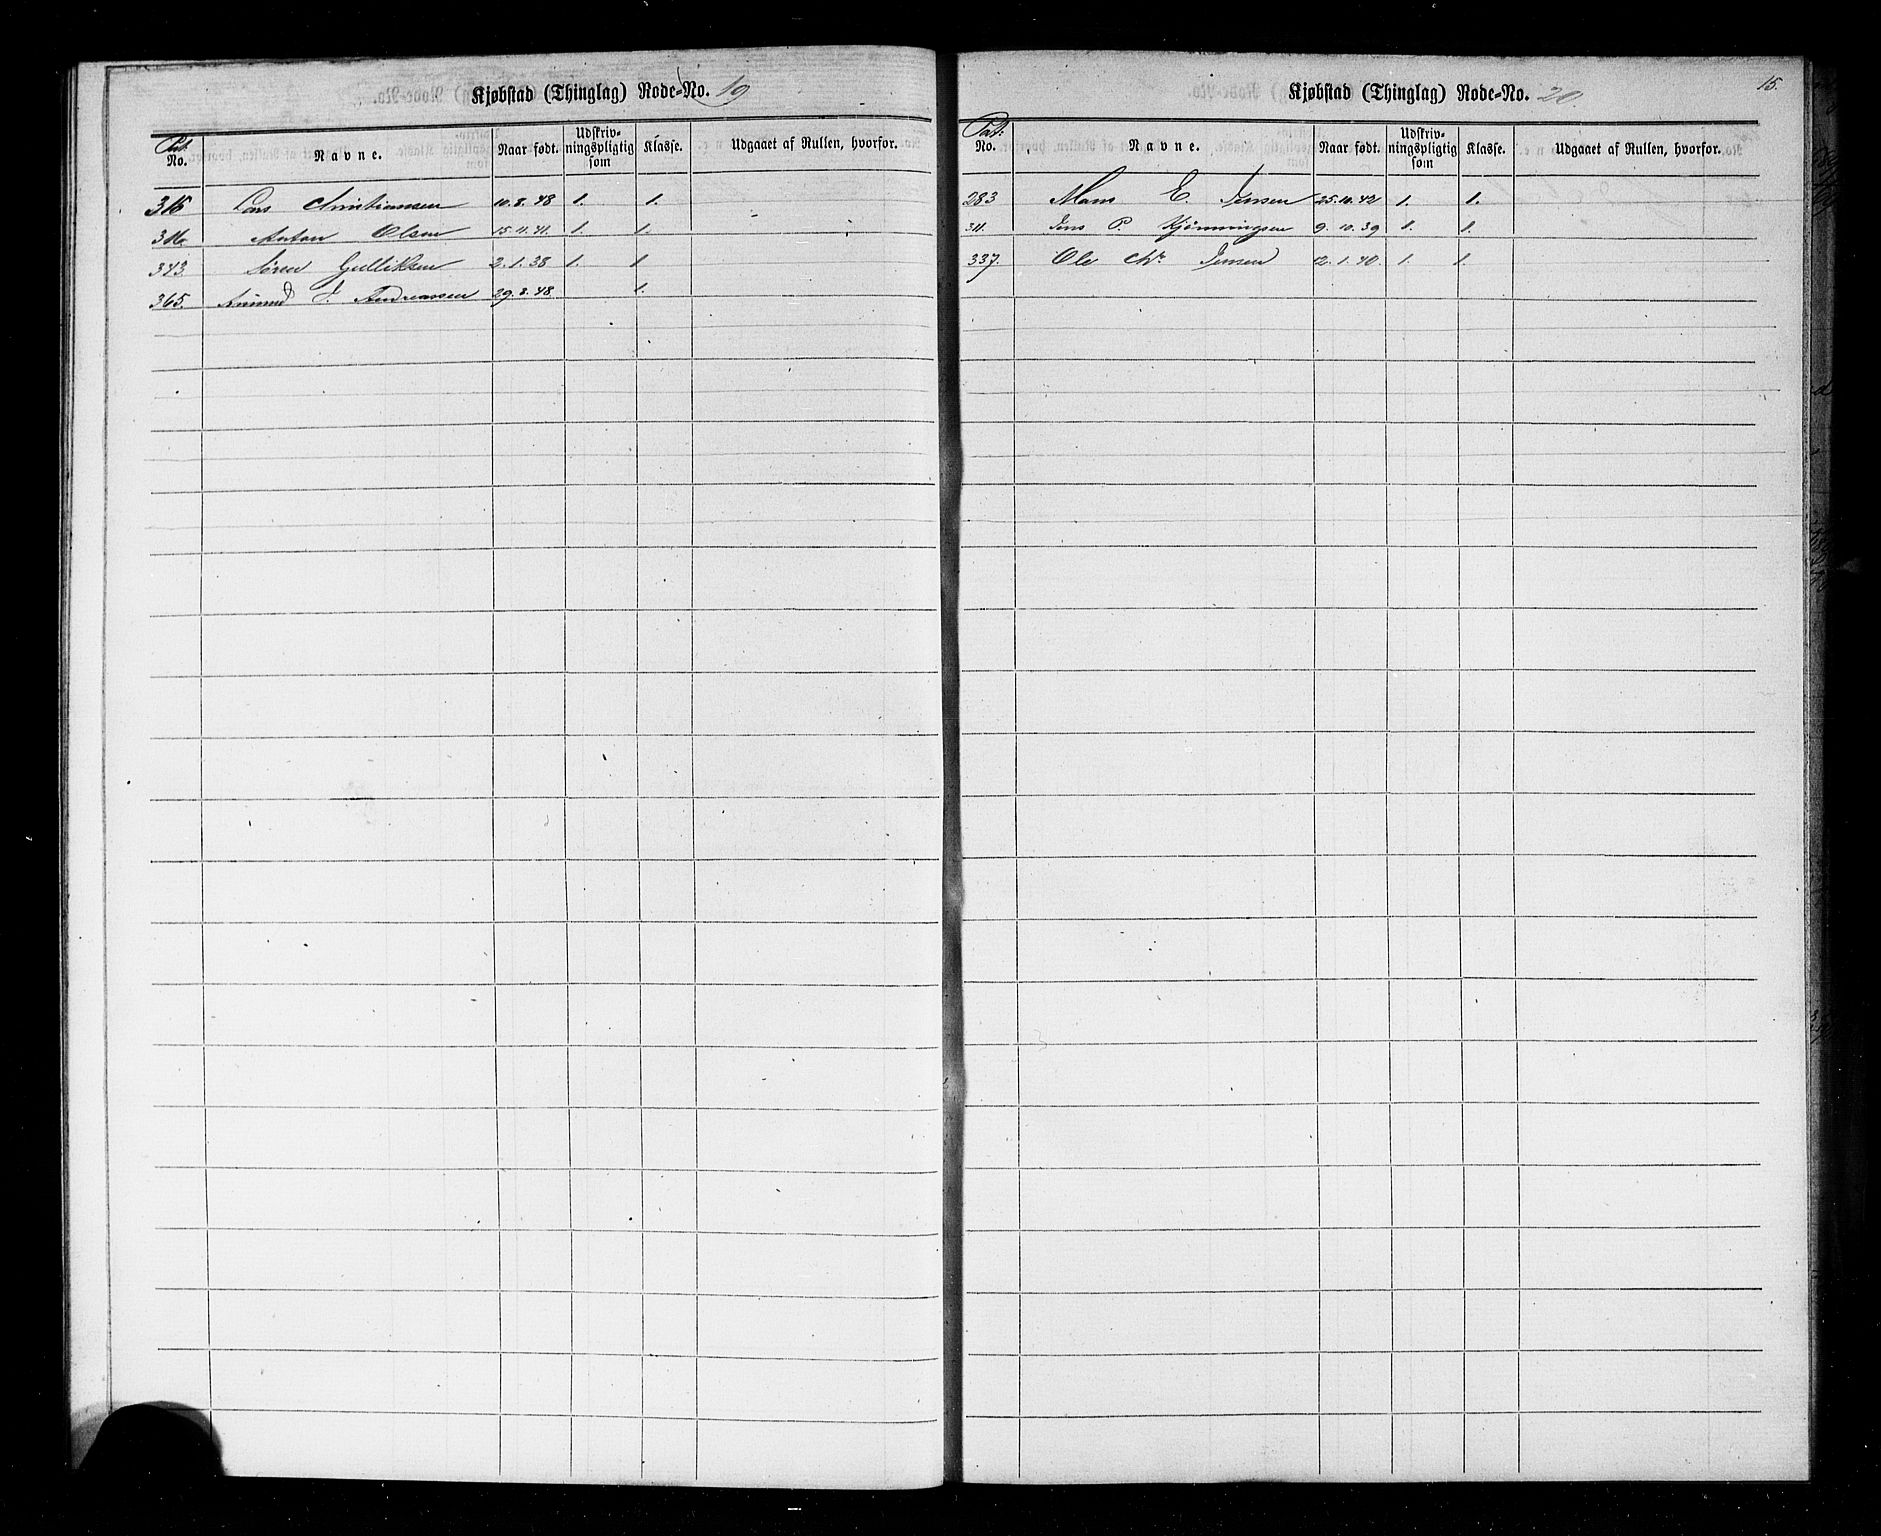 Kjøbstad (Thinglag) Rode-No. 19
Pat: No. Navne. Naar født. Udskrivningspligtig som Klasse. Udgaaet af Rullen, hvorfor.
315 Lars Christiansen 10.8.48 1. 1.
316. Anton Olsen 15.11.41. 1. 1.
343. Søren Gulliksen 2.1.38 1. 1
365. Amund J. Andreassen 29.3.48 1.
15.
Kjøbstad (Thinglag) Rode-No. 20.
Pat: No. Navne. Naar født. Udskrivningspligtig som Klasse. Udgaaet af Rullen, hvorfor.
283 Hans E. Jensen 25.10.42 1. 1.
311. Jens P. Hjønningsen 9.10.39 1. 1.
337. Ole Chr. Jensen 12.1.40. 1. 1.